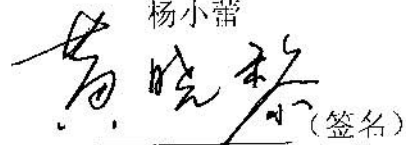 杨小蕾
黄晓黎
(签名)